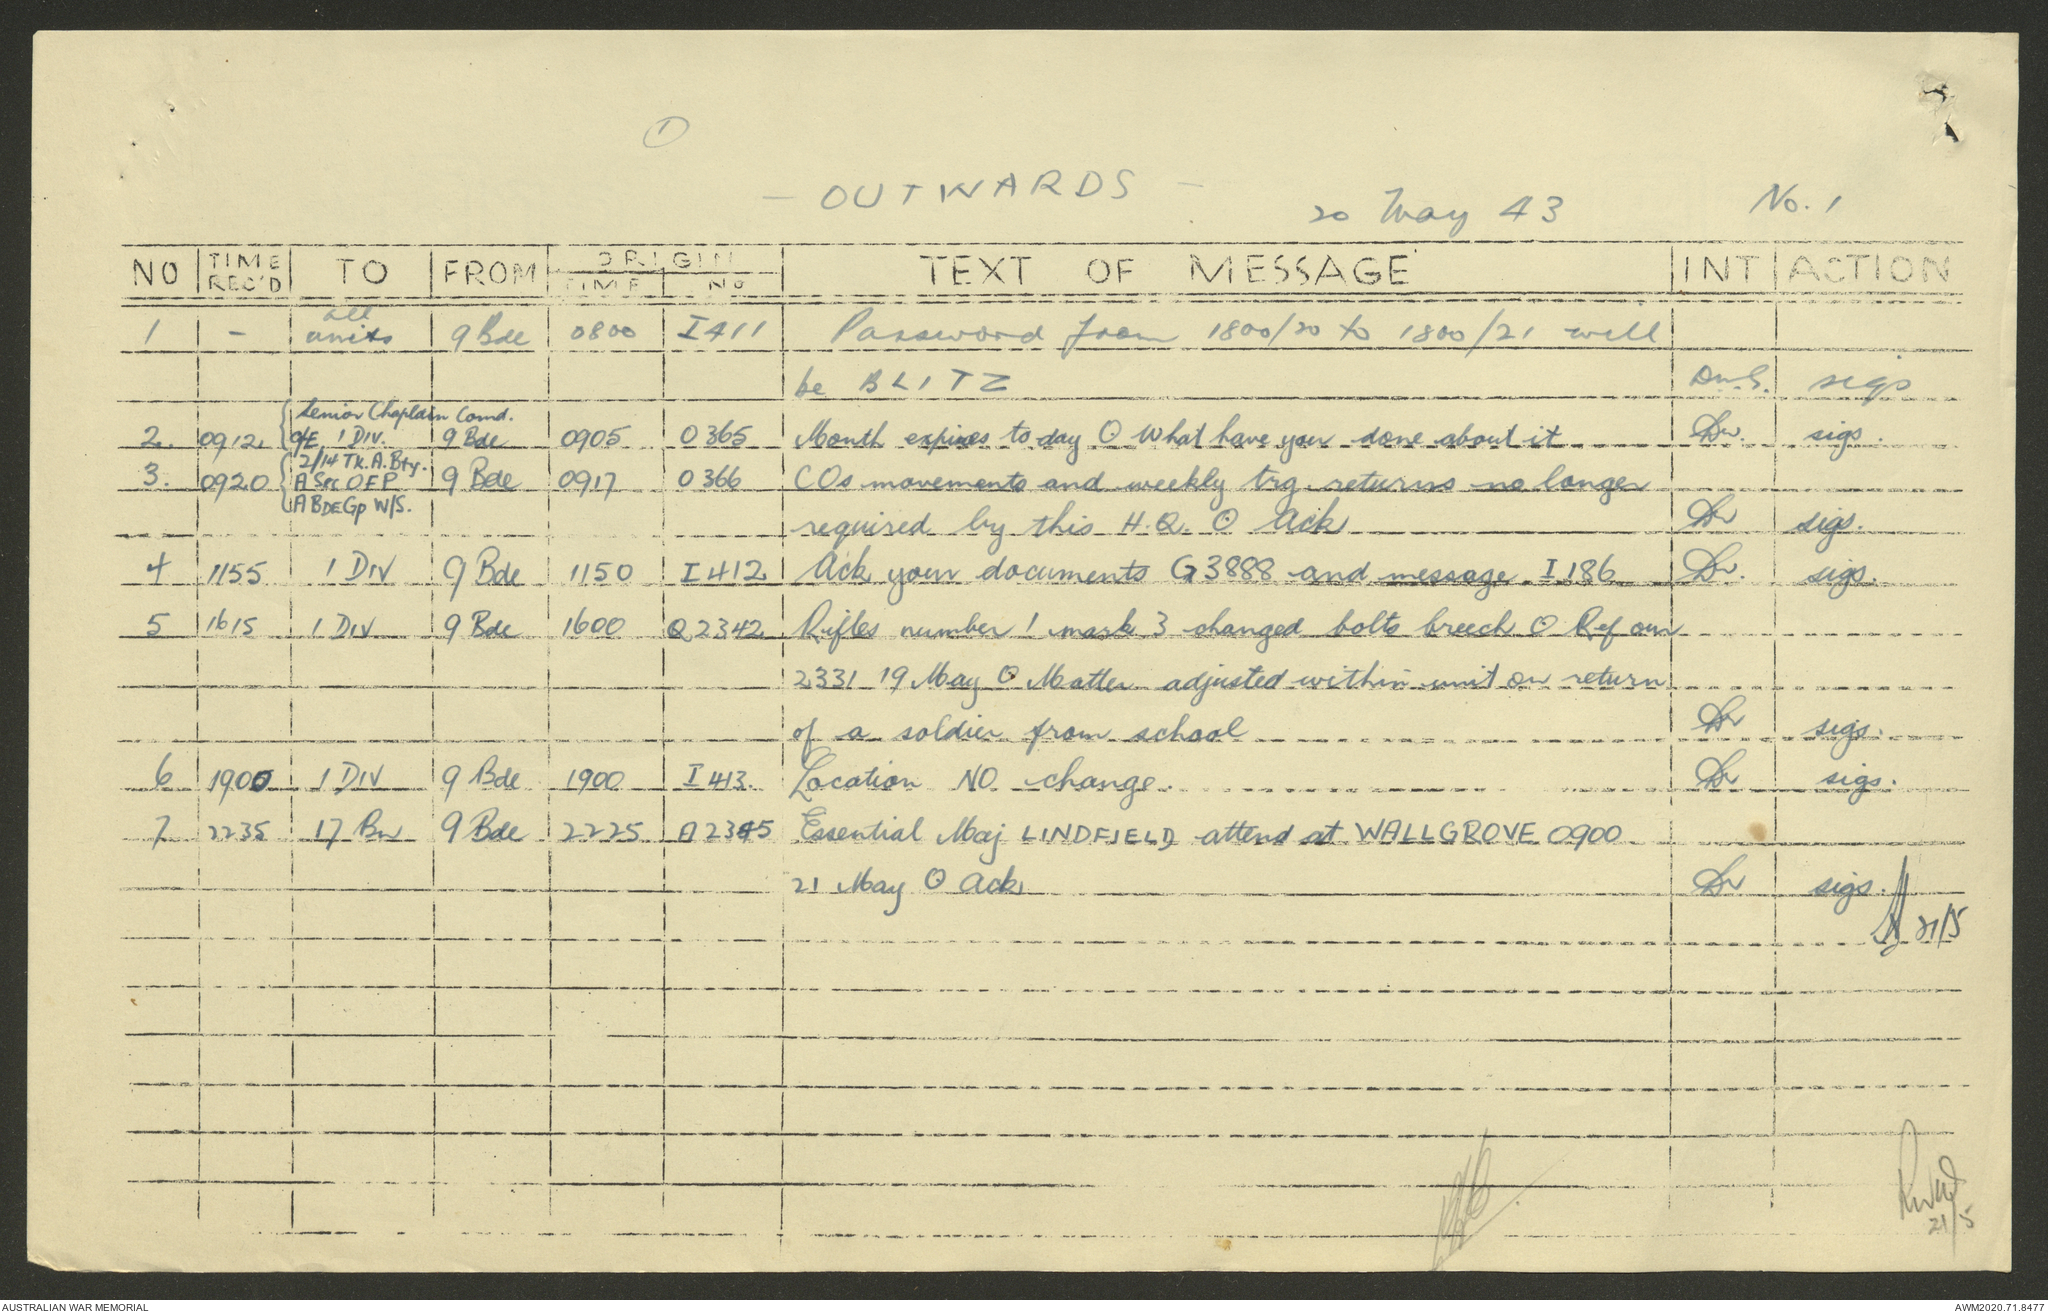 ①
- OUTWARDS -
20 May 43
No. 1
NO | TIME REC'D | TO | FROM | ORIGIN TIME | ORIGIN No | TEXT OF MESSAGE | INT | ACTION
1 | - | all units | 9 Bde | 0800 | I411 | Password from 1800/20 to 1800/21 will
be BLITZ | DWS. | sigs
2. | 0912 | Senior Chaplain Comd. C/E 1 DIV. | 9 Bde | 0905 | O365 | Month expires to day ⊙ What have you done about it | DW. | sigs.
3. | 0920 | 2/14 Tk. A. Bty. A Sec OFP A BDE Gp W/S. | 9 Bde | 0917 | O366 | COs movements and weekly trg. returns no longer
required by this H.Q. ⊙ Ack | DW | sigs.
4 | 1155 | 1 DIV | 9 Bde | 1150 | I412 | Ack your documents G3888 and message I186 | DW. | sigs.
5 | 1615 | 1 DIV | 9 Bde | 1600 | Q2342 | Rifles number 1 mark 3 changed bolts breech ⊙ Ref our
2331 19 May ⊙ Matter adjusted within unit on return
of a soldier from school | DW | sigs.
6 | 1900 | 1 DIV | 9 Bde | 1900 | I413. | Location NO change. | DW | sigs.
7 | 2235 | 17 Bn | 9 Bde | 2225 | A2345 | Essential Maj LINDFIELD attend at WALLGROVE 0900
21 May ⊙ Ack | DW | sigs.
21/5
21/5
AUSTRALIAN WAR MEMORIAL
AWM2020.71.8477